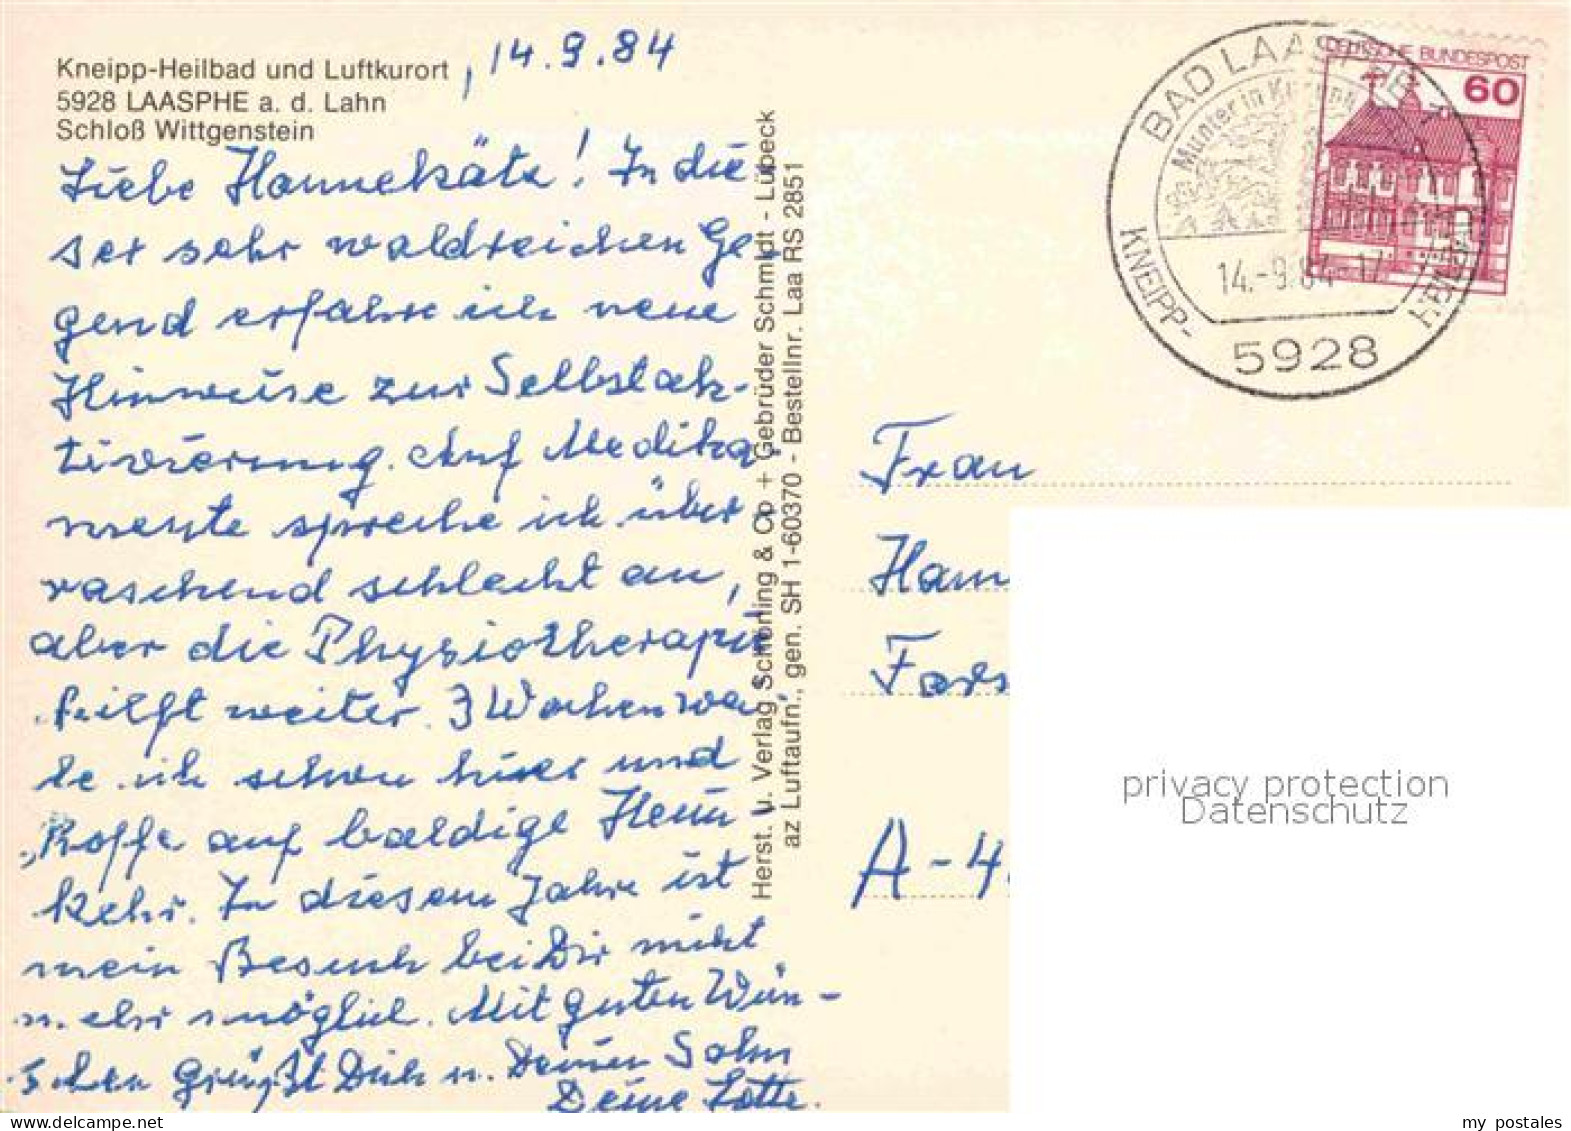 Kneipp-Heilbad und Luftkurort
5928 LAASPHE a. d. Lahn
Schloß Wittgenstein
, 14.9.84
Liebe Hannekäte! In die-
ser sehr waldreichen Ge-
gend erfahre ich neue
Hinweise zur Selbstak-
tivierung. Auf Medika-
mente spreche ich über
raschend schlecht an,
aber die Physiotherapie
hilft weiter. 3 Wochen wa
te ich schon hier und
hoffe auf baldige Heim-
kehr. In diesem Jahre ist
mein Besuch bei Dir nicht
mehr möglich. Mit guten Wün-
schen grüßt Dich u. Deinen Sohn
Deine Lotte.
Herst. u. Verlag Schöning & Co + Gebrüder Schmidt - Lübeck
az Luftaufn., gen. SH 1-60370 - Bestellnr. Laa RS 2851
BAD LAASPHE 1
Munter in
14.-9.84-17
KNEIPP-
HEILBAD
5928
DEUTSCHE BUNDESPOST
60
Frau
Hann
Fors
A-4
privacy protection
Datenschutz
my_postales